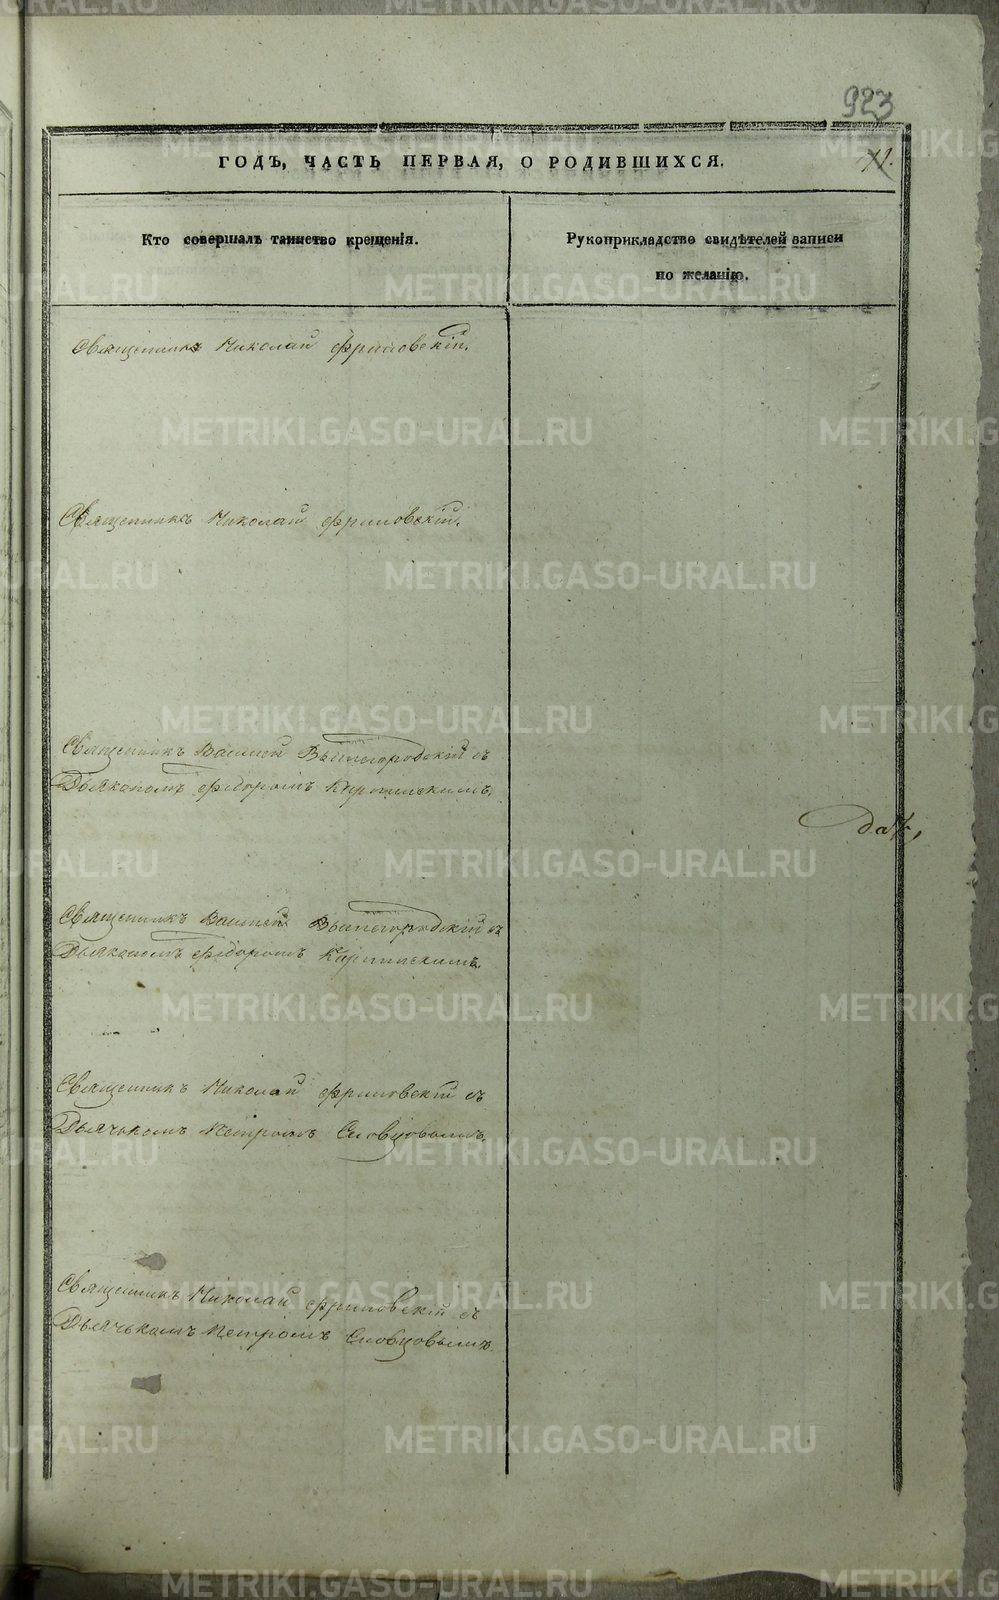 923
ГОДЪ, ЧАСТЬ ПЕРВАЯ, О РОДИВШИХСЯ.
Кто совершалъ таинство крещенія.
Рукоприкладство свидѣтелей записи
по желанію.
Священникъ Николай Фриновскій.
Священникъ Николай Фриновскій.
Священникъ Василей Вышегородскій съ
Дьякономъ Ѳедоромъ Карпинскимъ.
Священникъ Василей Вышегородскій съ
Дьякономъ Ѳедоромъ Карпинскимъ.
Священникъ Николай Фриновскій съ
Дьячькомъ Петромъ Словцовымъ.
Священникъ Николай Фриновскій съ
Дьячькомъ Петромъ Словцовымъ.
METRIKI.GASO-URAL.RU